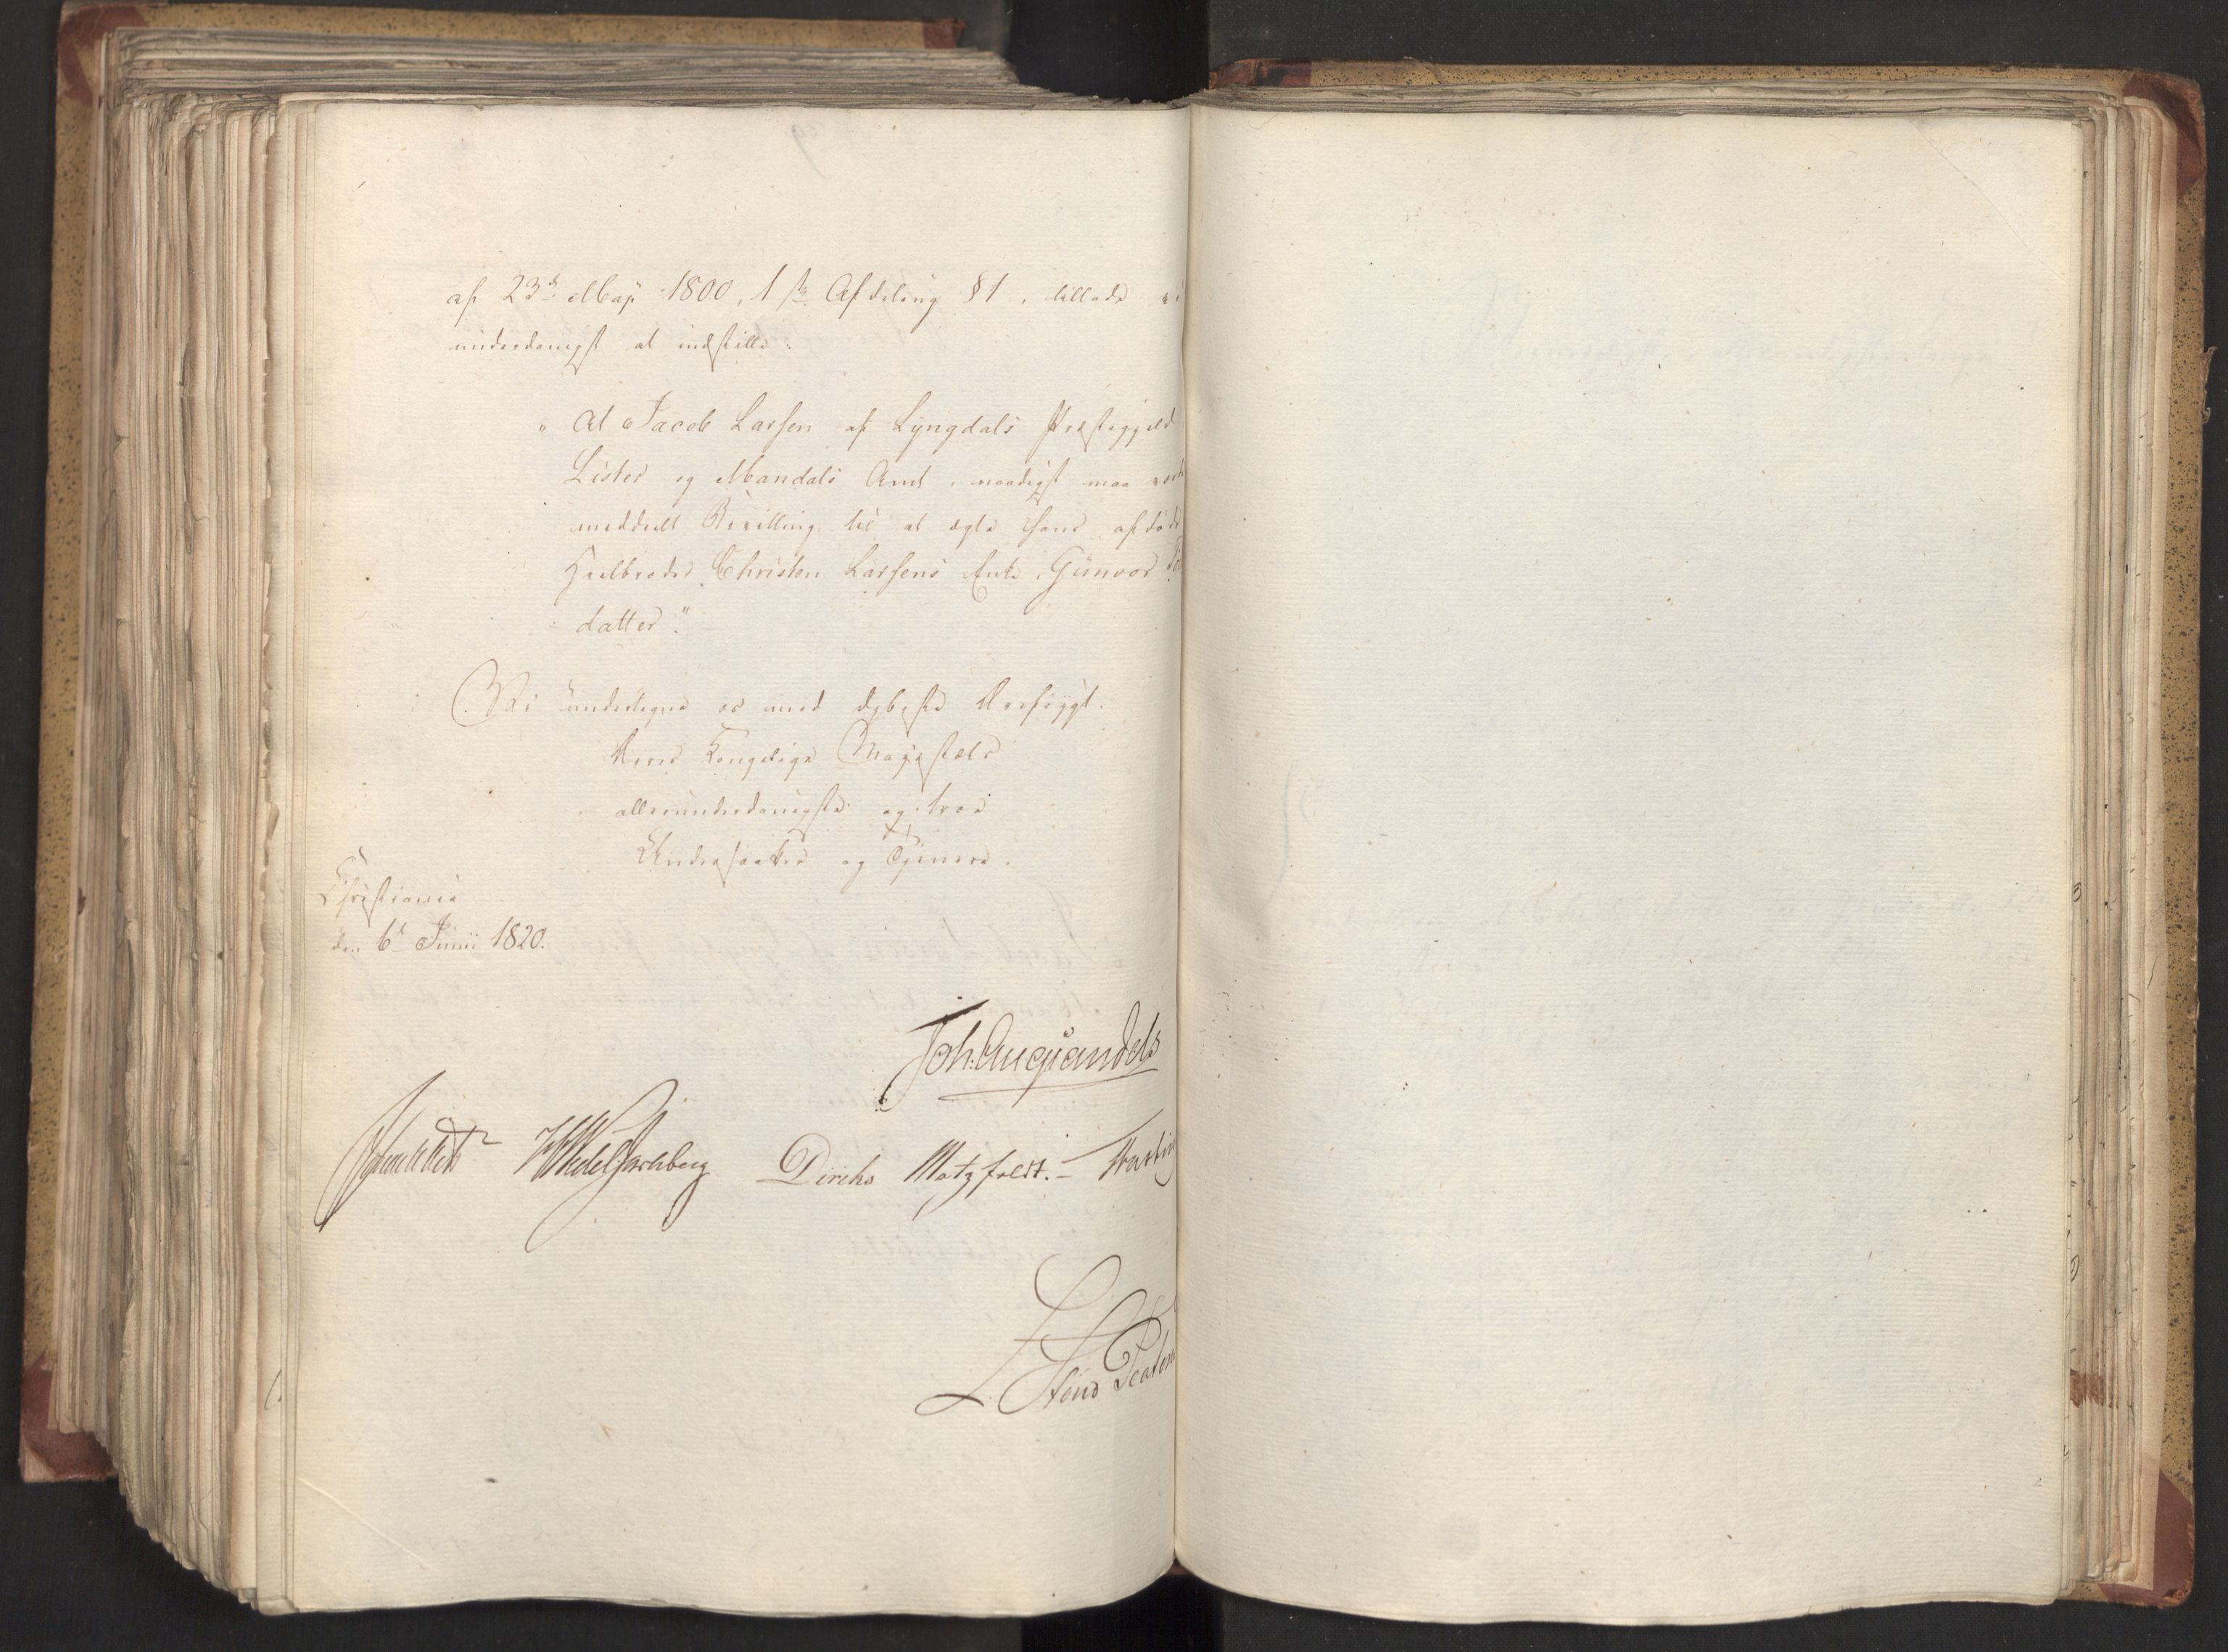 af 23de Maji 1800, 1ste Afdeling § 1, tillade vi
underdanigst at indstille:
"At Jacob Larsen af Lyngdals Præstegjeld
Lister og Mandals Amt, naadigst maa vorde
meddeelt Bevilling til at ægte hans afdøde
Halbroder Christen Larsens Enke, Gunvor
datter."
Vi undertegne os med dybeste Ærefrygt.
Deres Kongelige Majestæts
allerunderdanigste og troe
Undersaatter og Tjenere.
Christiania
den 6te Junii 1820.
Joh. Aug. Sandels
Sommerhielm HWedel Jarlsberg Diriks Motzfeldt.